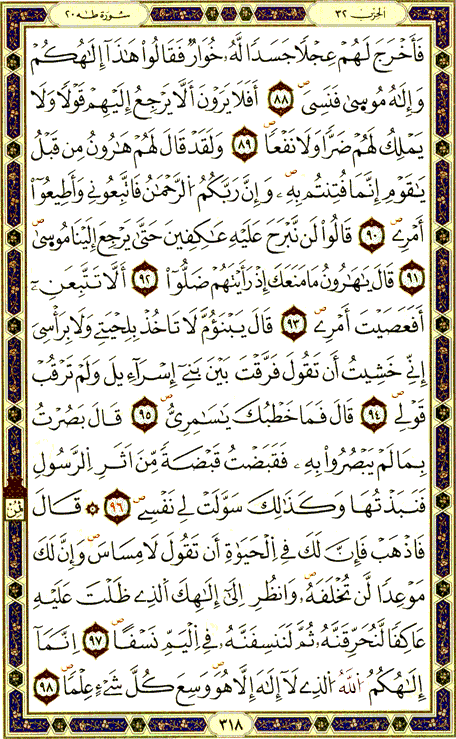 الحزب ٣٢
سورة طه ٢٠
فَأَخْرَجَ لَهُمْ عِجْلًا جَسَدًا لَّهُۥ خُوَارٌ فَقَالُوا۟ هَٰذَآ إِلَٰهُكُمْ
وَإِلَٰهُ مُوسِىٰ فَنَسِىَ ٨٨ أَفَلَا يَرَوْنَ أَلَّا يَرْجِعُ إِلَيْهِمْ قَوْلًا وَلَا
يَمْلِكُ لَهُمْ ضَرًّا وَلَا نَفْعًا ٨٩ وَلَقَدْ قَالَ لَهُمْ هَٰرُونُ مِن قَبْلُ
يَٰقَوْمِ إِنَّمَا فُتِنتُم بِهِۦ وَإِنَّ رَبَّكُمُ الرَّحْمَٰنُ فَاتَّبِعُونِى وَأَطِيعُوٓا۟
أَمْرِى ٩٠ قَالُوا۟ لَن نَّبْرَحَ عَلَيْهِ عَٰكِفِينَ حَتَّىٰ يَرْجِعَ إِلَيْنَا مُوسِىٰ
٩١ قَالَ يَٰهَٰرُونُ مَا مَنَعَكَ إِذْ رَأَيْتَهُمْ ضَلُّوٓا۟ ٩٢ أَلَّا تَتَّبِعَنِۦ
أَفَعَصَيْتَ أَمْرِى ٩٣ قَالَ يَبْنَؤُمَّ لَا تَاخُذْ بِلِحْيَتِى وَلَا بِرَاْسِىَ
إِنِّى خَشِيتُ أَن تَقُولَ فَرَّقْتَ بَيْنَ بَنِىٓ إِسْرَآءِيلَ وَلَمْ تَرْقُبْ
قَوْلِى ٩٤ قَالَ فَمَا خَطْبُكَ يَٰسَٰمِرِىُّ ٩٥ قَالَ بَصُرْتُ
بِمَا لَمْ يَبْصُرُوا۟ بِهِۦ فَقَبَضْتُ قَبْضَةً مِّنْ أَثَرِ الرَّسُولِ
فَنَبَذْتُهَا وَكَذَٰلِكَ سَوَّلَتْ لِى نَفْسِى ٩٦ ۞ قَالَ
فَاذْهَبْ فَإِنَّ لَكَ فِى الْحَيَوٰةِ أَن تَقُولَ لَا مِسَاسَ وَإِنَّ لَكَ
مَوْعِدًا لَّن تُخْلِفَهُۥ وَانظُرْ إِلَىٰٓ إِلَٰهِكَ الَّذِى ظَلْتَ عَلَيْهِ
عَاكِفًا لَّنُحَرِّقَنَّهُۥ ثُمَّ لَنَنسِفَنَّهُۥ فِى الْيَمِّ نَسْفًا ٩٧ إِنَّمَآ
إِلَٰهُكُمُ اللَّهُ الَّذِى لَآ إِلَٰهَ إِلَّا هُوَ وَسِعَ كُلَّ شَىْءٍ عِلْمًا ٩٨
٣١٨